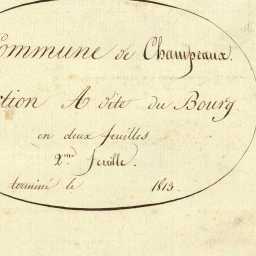 Commune de Champeaux.
ction A dite du Bourg
en deux feuilles
2.me feuille.
terminé le 1813.